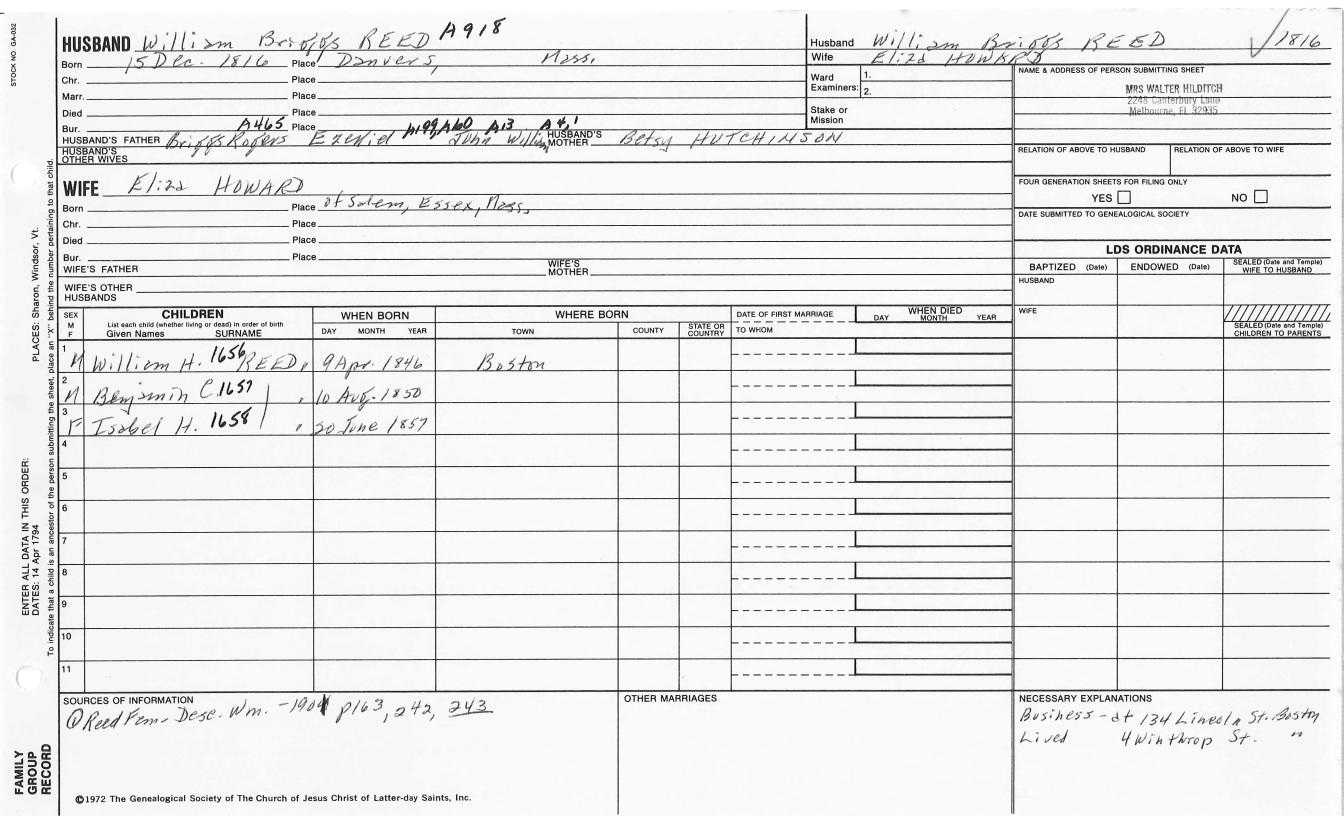 STOCK NO GA-032
HUSBAND William Briggs REED A918
Born 15 Dec. 1816 Place Danvers, Mass.
Chr. Place
Marr. Place
Died Place
Bur. A465 Place A199, A60 A13 A4,1
HUSBAND'S FATHER Briggs Rogers Ezekiel John William HUSBAND'S MOTHER Betsy HUTCHINSON
HUSBAND'S OTHER WIVES
Husband William Briggs REED √1816
Wife Eliza HOWARD
Ward Examiners: 1.
2.
Stake or Mission
NAME & ADDRESS OF PERSON SUBMITTING SHEET
MRS WALTER HILDITCH
2248 Canterbury Lane
Melbourne, FL 32935
RELATION OF ABOVE TO HUSBAND RELATION OF ABOVE TO WIFE
FOUR GENERATION SHEETS FOR FILING ONLY
YES NO
DATE SUBMITTED TO GENEALOGICAL SOCIETY
WIFE Eliza HOWARD
Born Place of Salem, Essex, Mass,
Chr. Place
Died Place
Bur. Place
WIFE'S FATHER WIFE'S MOTHER
WIFE'S OTHER HUSBANDS
LDS ORDINANCE DATA
BAPTIZED (Date) ENDOWED (Date) SEALED (Date and Temple) WIFE TO HUSBAND
HUSBAND
WIFE
SEALED (Date and Temple) CHILDREN TO PARENTS
SEX M F CHILDREN WHEN BORN WHERE BORN DATE OF FIRST MARRIAGE WHEN DIED
List each child (whether living or dead) in order of birth
Given Names SURNAME DAY MONTH YEAR TOWN COUNTY STATE OR COUNTRY TO WHOM DAY MONTH YEAR
1 M William H. 1656 REED, 9 Apr. 1846 Boston
2 M Benjamin C. 1657 , 10 Aug. 1850
3 F Isabel H. 1658 , 20 June 1857
4
5
6
7
8
9
10
11
SOURCES OF INFORMATION
① Reed Fam - Desc. Wm. - 1901 p163, 242, 243
OTHER MARRIAGES
NECESSARY EXPLANATIONS
Business - at 134 Lincoln St. Boston
Lived 4 Winthrop St. "
©1972 The Genealogical Society of The Church of Jesus Christ of Latter-day Saints, Inc.
PLACES: Sharon, Windsor, Vt.
ENTER ALL DATA IN THIS ORDER:
DATES: 14 Apr 1794
To indicate that a child is an ancestor of the person submitting the sheet, place an "X" behind the number pertaining to that child.
FAMILY
GROUP
RECORD